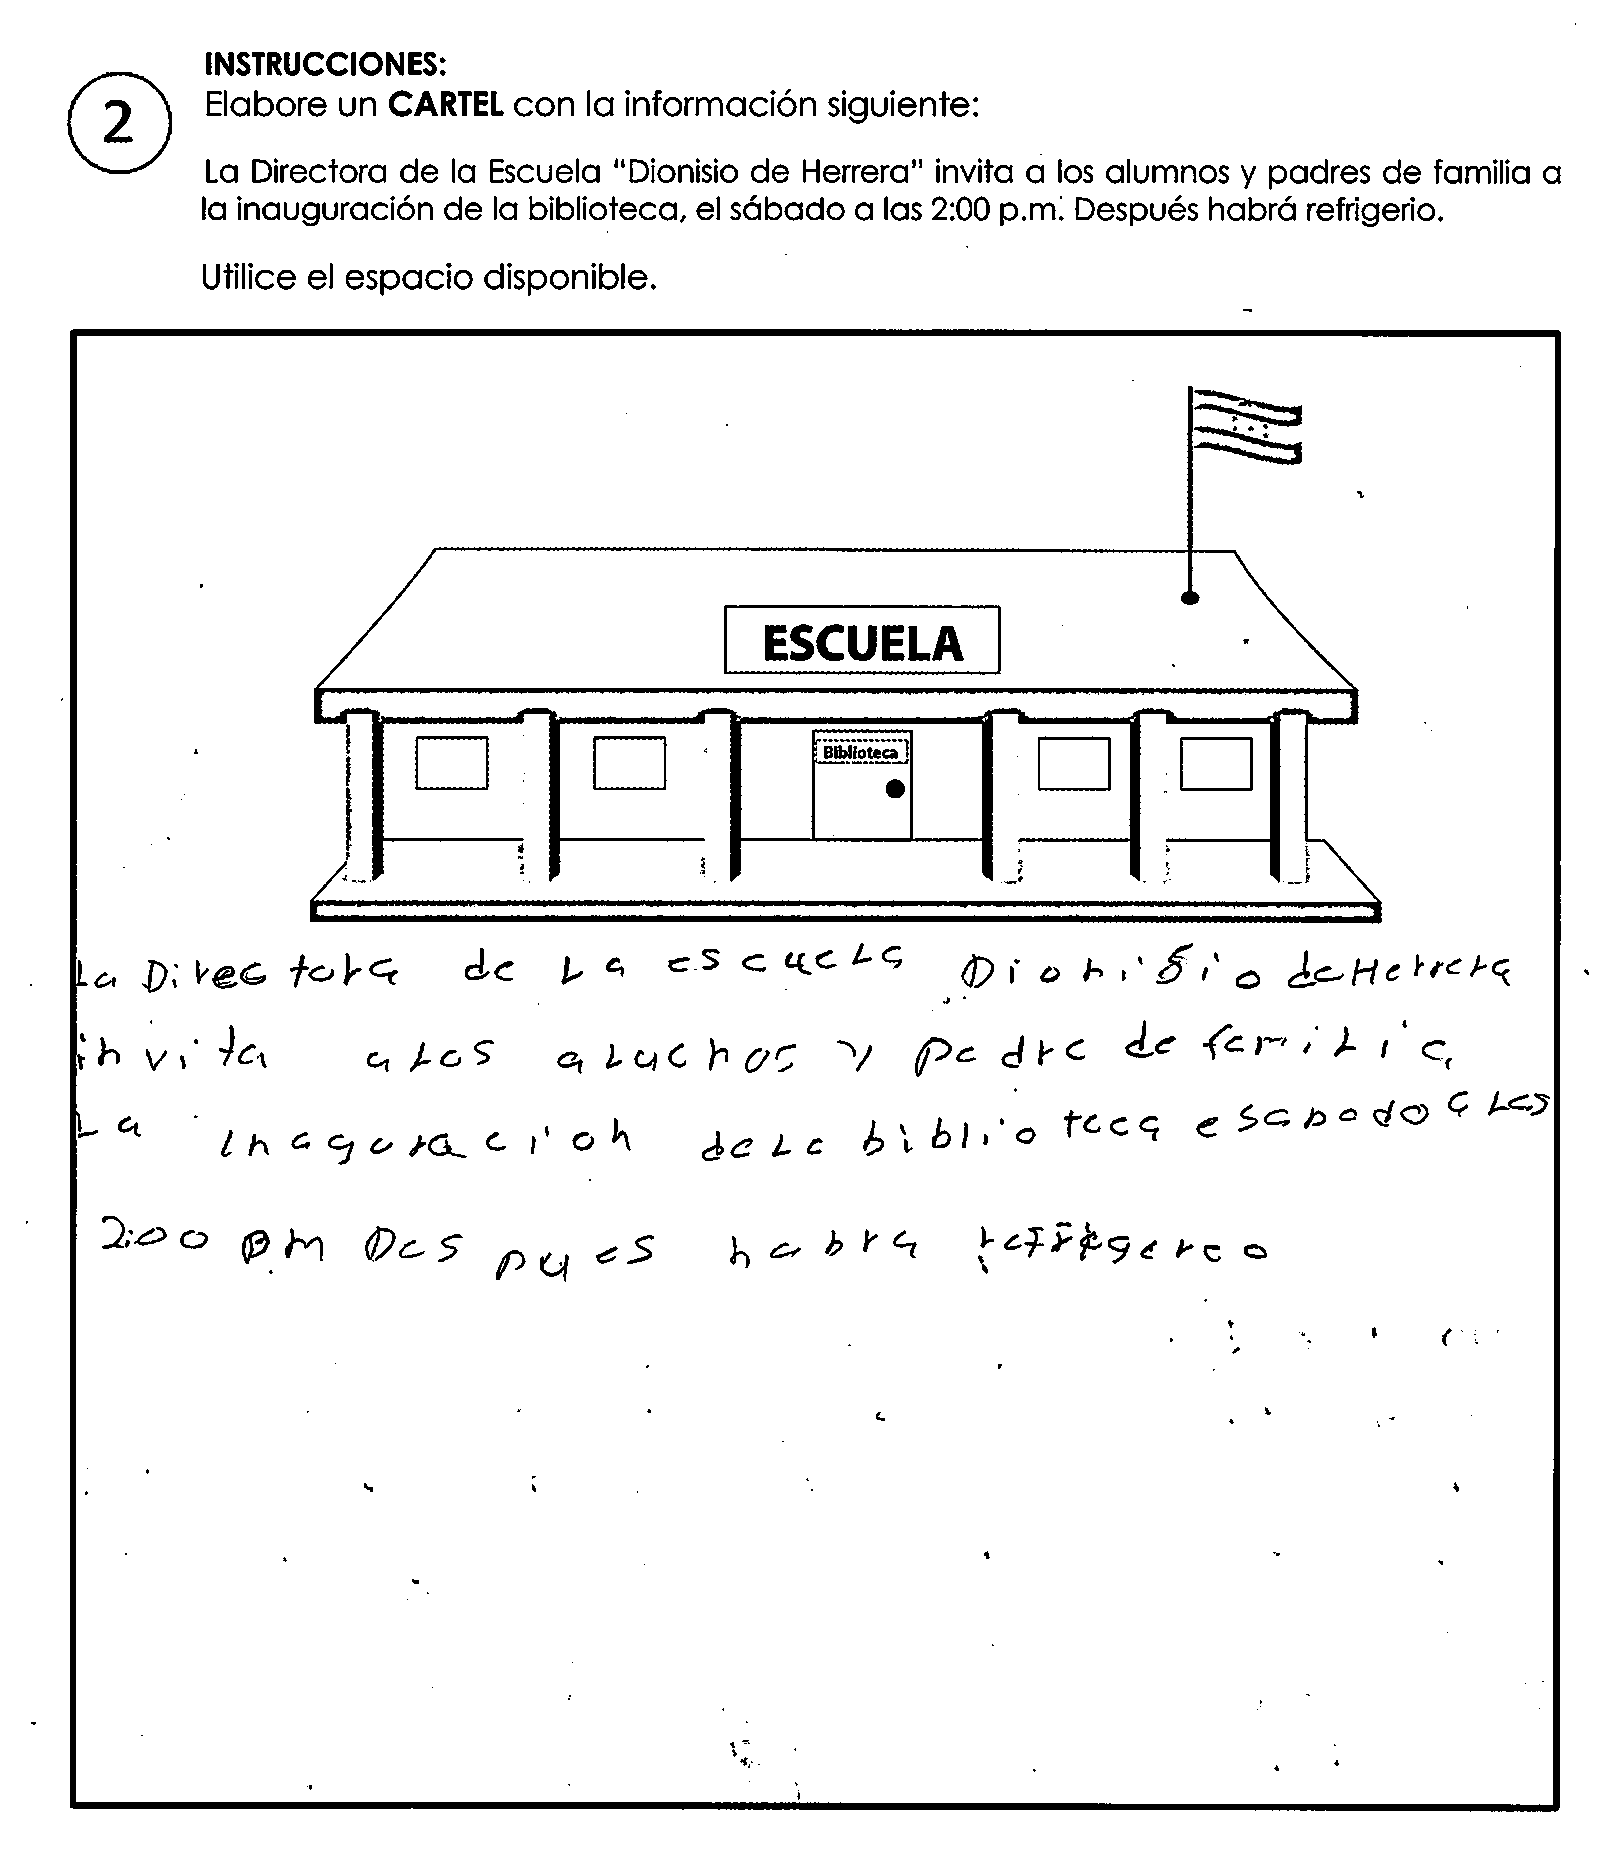 INSTRUCCIONES:
2
Elabore un CARTEL con la información siguiente:
La Directora de la Escuela "Dionisio de Herrera" invita a los alumnos y padres de familia a
la inauguración de la biblioteca, el sábado a las 2:00 p.m. Después habrá refrigerio.
Utilice el espacio disponible.
ESCUELA
Biblioteca
La Directora de La escuela Dionisio de Herrera
invita a Los aluchos y padre de familia
La inaguracion de La biblioteca e sabado a Las
2:00 pm Des pues habra